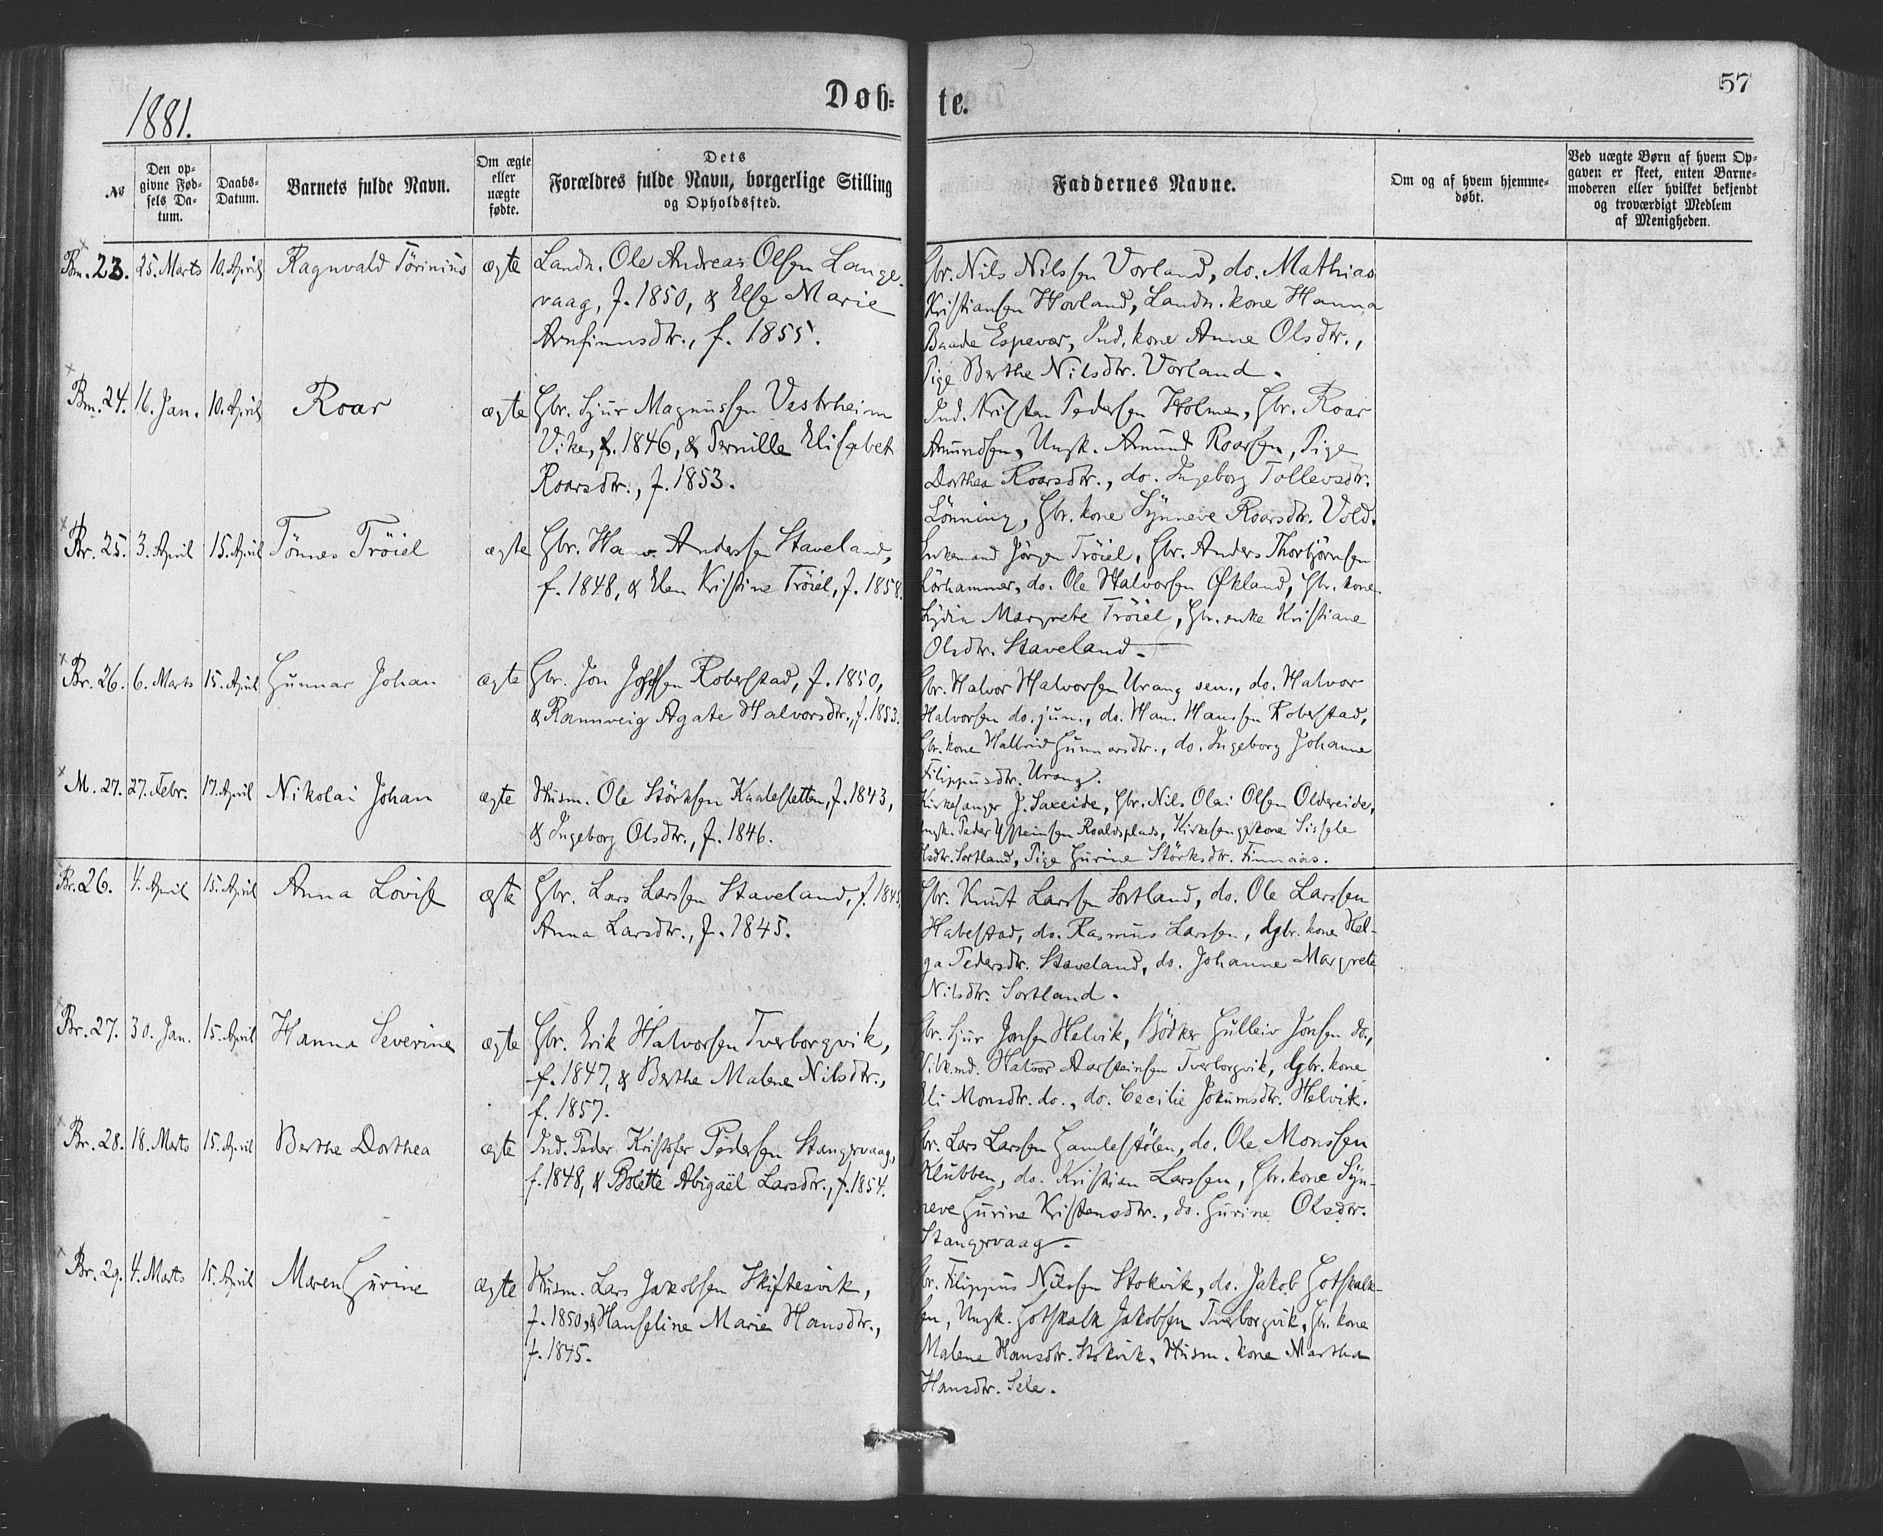 1881.
Døb-
te.
57
№
Den op-
givne Fød-
sels Da-
tum.
Daabs-
Datum.
Barnets fulde Navn.
Om ægte
eller
uægte
fødte.
Dets
Forældres fulde Navn, borgerlige Stilling
og Opholdssted.
Faddernes Navne.
Om og af hvem hjemme-
døbt.
Ved uægte Børn af hvem Op-
gaven er skeet, enten Barne-
moderen eller hvilket bekjendt
og troværdigt Medlem
af Menigheden.
Bm. 23. 25. Marts 10. April Ragnvald Tørinius ægte
Landh. Ole Andreas Olsen Lange-
vaag, f. 1850, & Else Marie
Arnfinnsdtr., f. 1855.
Gbr. Nils Nilssen Vorland, do. Mathias
Kristiansen Hovland, Landh. kone Hanna
Baade Espevær, Ind. kone Anne Olsdtr.,
Pige Berthe Nilsdtr. Vorland.
Bm. 24. 16. Jan. 10. April Roar ægte
Gbr. Sjur Magnussen Vestrheim
Vike, f. 1846, & Pernille Elisabet
Roarsdtr., f. 1853.
Ind. Kristen Pedersen Holmen, Gbr. Roar
Amundsen, Ungk. Amund Roarsen, Pige
Dorthea Roarsdtr., do. Ingeborg Tollevsdtr.
Lønning, Gbr. kone Synneve Roarsdtr. Vold.
Br. 25. 3. April 15. April Tønnes Trøiel ægte
Gbr. Hans Andersen Staveland,
f. 1848, & Elen Kristine Trøiel, f. 1858.
Enkemand Jørgen Trøiel, Gbr. Anders Thorbjørnsen
Lørhammer, do. Ole Halvorsen Økland, Gbr. kone
Lydia Margrete Trøiel, Gbr. enke Kristiane
Olsdtr. Staveland.
Br. 26. 6. Marts 15. April Gunnar Johan ægte
Gbr. Jon Robertstad, f. 1850,
& Rannveig Agate Halvorsdtr., f. 1853.
Gbr. Halvor Halvorsen Urang sen., do. Halvor
Halvorsen do. jun., do. Hans Hanssen Robertstad,
Gbr. kone Hallvid Gunnarsdtr., do. Ingeborg Johanne
Filippusdtr. Urang.
M. 27. 27. Febr. 17. April Nikolai Johan ægte
Husm. Ole Størksen Kaalesletten, f. 1843,
& Ingeborg Olsdtr., f. 1846.
Kirkesanger J. Saxeide, Gbr. Nils Olai Olsen Oldereide,
Ungk. Peder Roaldsplads, Kirkesangerkone Sissele
Olsdtr. Sortland, Pige Gurine Størksdtr. Finnaas.
Br. 26. 4. April 15. April Anna Lovise ægte
Gbr. Lars Larssen Staveland, f.
Anna Larsdtr., f. 1845.
Gbr. Knut Larssen Sortland, do. Ole Larssen
Habestad, do. Rasmus Larssen, Gbr. kone Hel-
ga Pedersdtr. Staveland, do. Johanne Margrete
Nilsdtr. Sortland.
Br. 27. 30. Jan. 15. April Hanna Severine ægte
Gbr. Erik Halvorsen Tverborgvik,
f. 1847, & Berthe Malene Nilsdtr.,
f. 1857.
Gbr. Sjur Jonsen Helvik, Bødker Gulleiv Jonsen do.,
Vilk.md. Halvor Aarsteinsen Tverborgvik, Gbr. kone
Eli Monsdtr. do., do. Cecilie Jokumsdtr. Helvik.
Br. 28. 18. Marts 15. April Berthe Dorthea ægte
Ind. Peder Kristofer Pedersen Stangervaag,
f. 1848, & Bolette Abigaël Larsdtr., f. 1854.
Gbr. Lars Larssen Gamlestølen, do. Ole Monssen
Klubben, do. Kristian Larssen, Gbr. kone Syn-
neve Gurine Kristensdtr., do. Gurine Olsdtr.
Stangervaag.
Br. 29. 4. Marts 15. April Maren Gurine ægte
Husm. Lars Jakobsen Skiftesvik,
f. 1850, & Hanseline Marie Hansdtr.,
f. 1845.
Gbr. Filippus Nilssen Stokvik, do. Jakob Gotskalk-
sen, Ungk. Gotskalk Jakobsen Tverborgvik, Gbr. kone
Malene Hansdtr. Stokvik, Husm. kone Martha
Hansdtr. Sele.